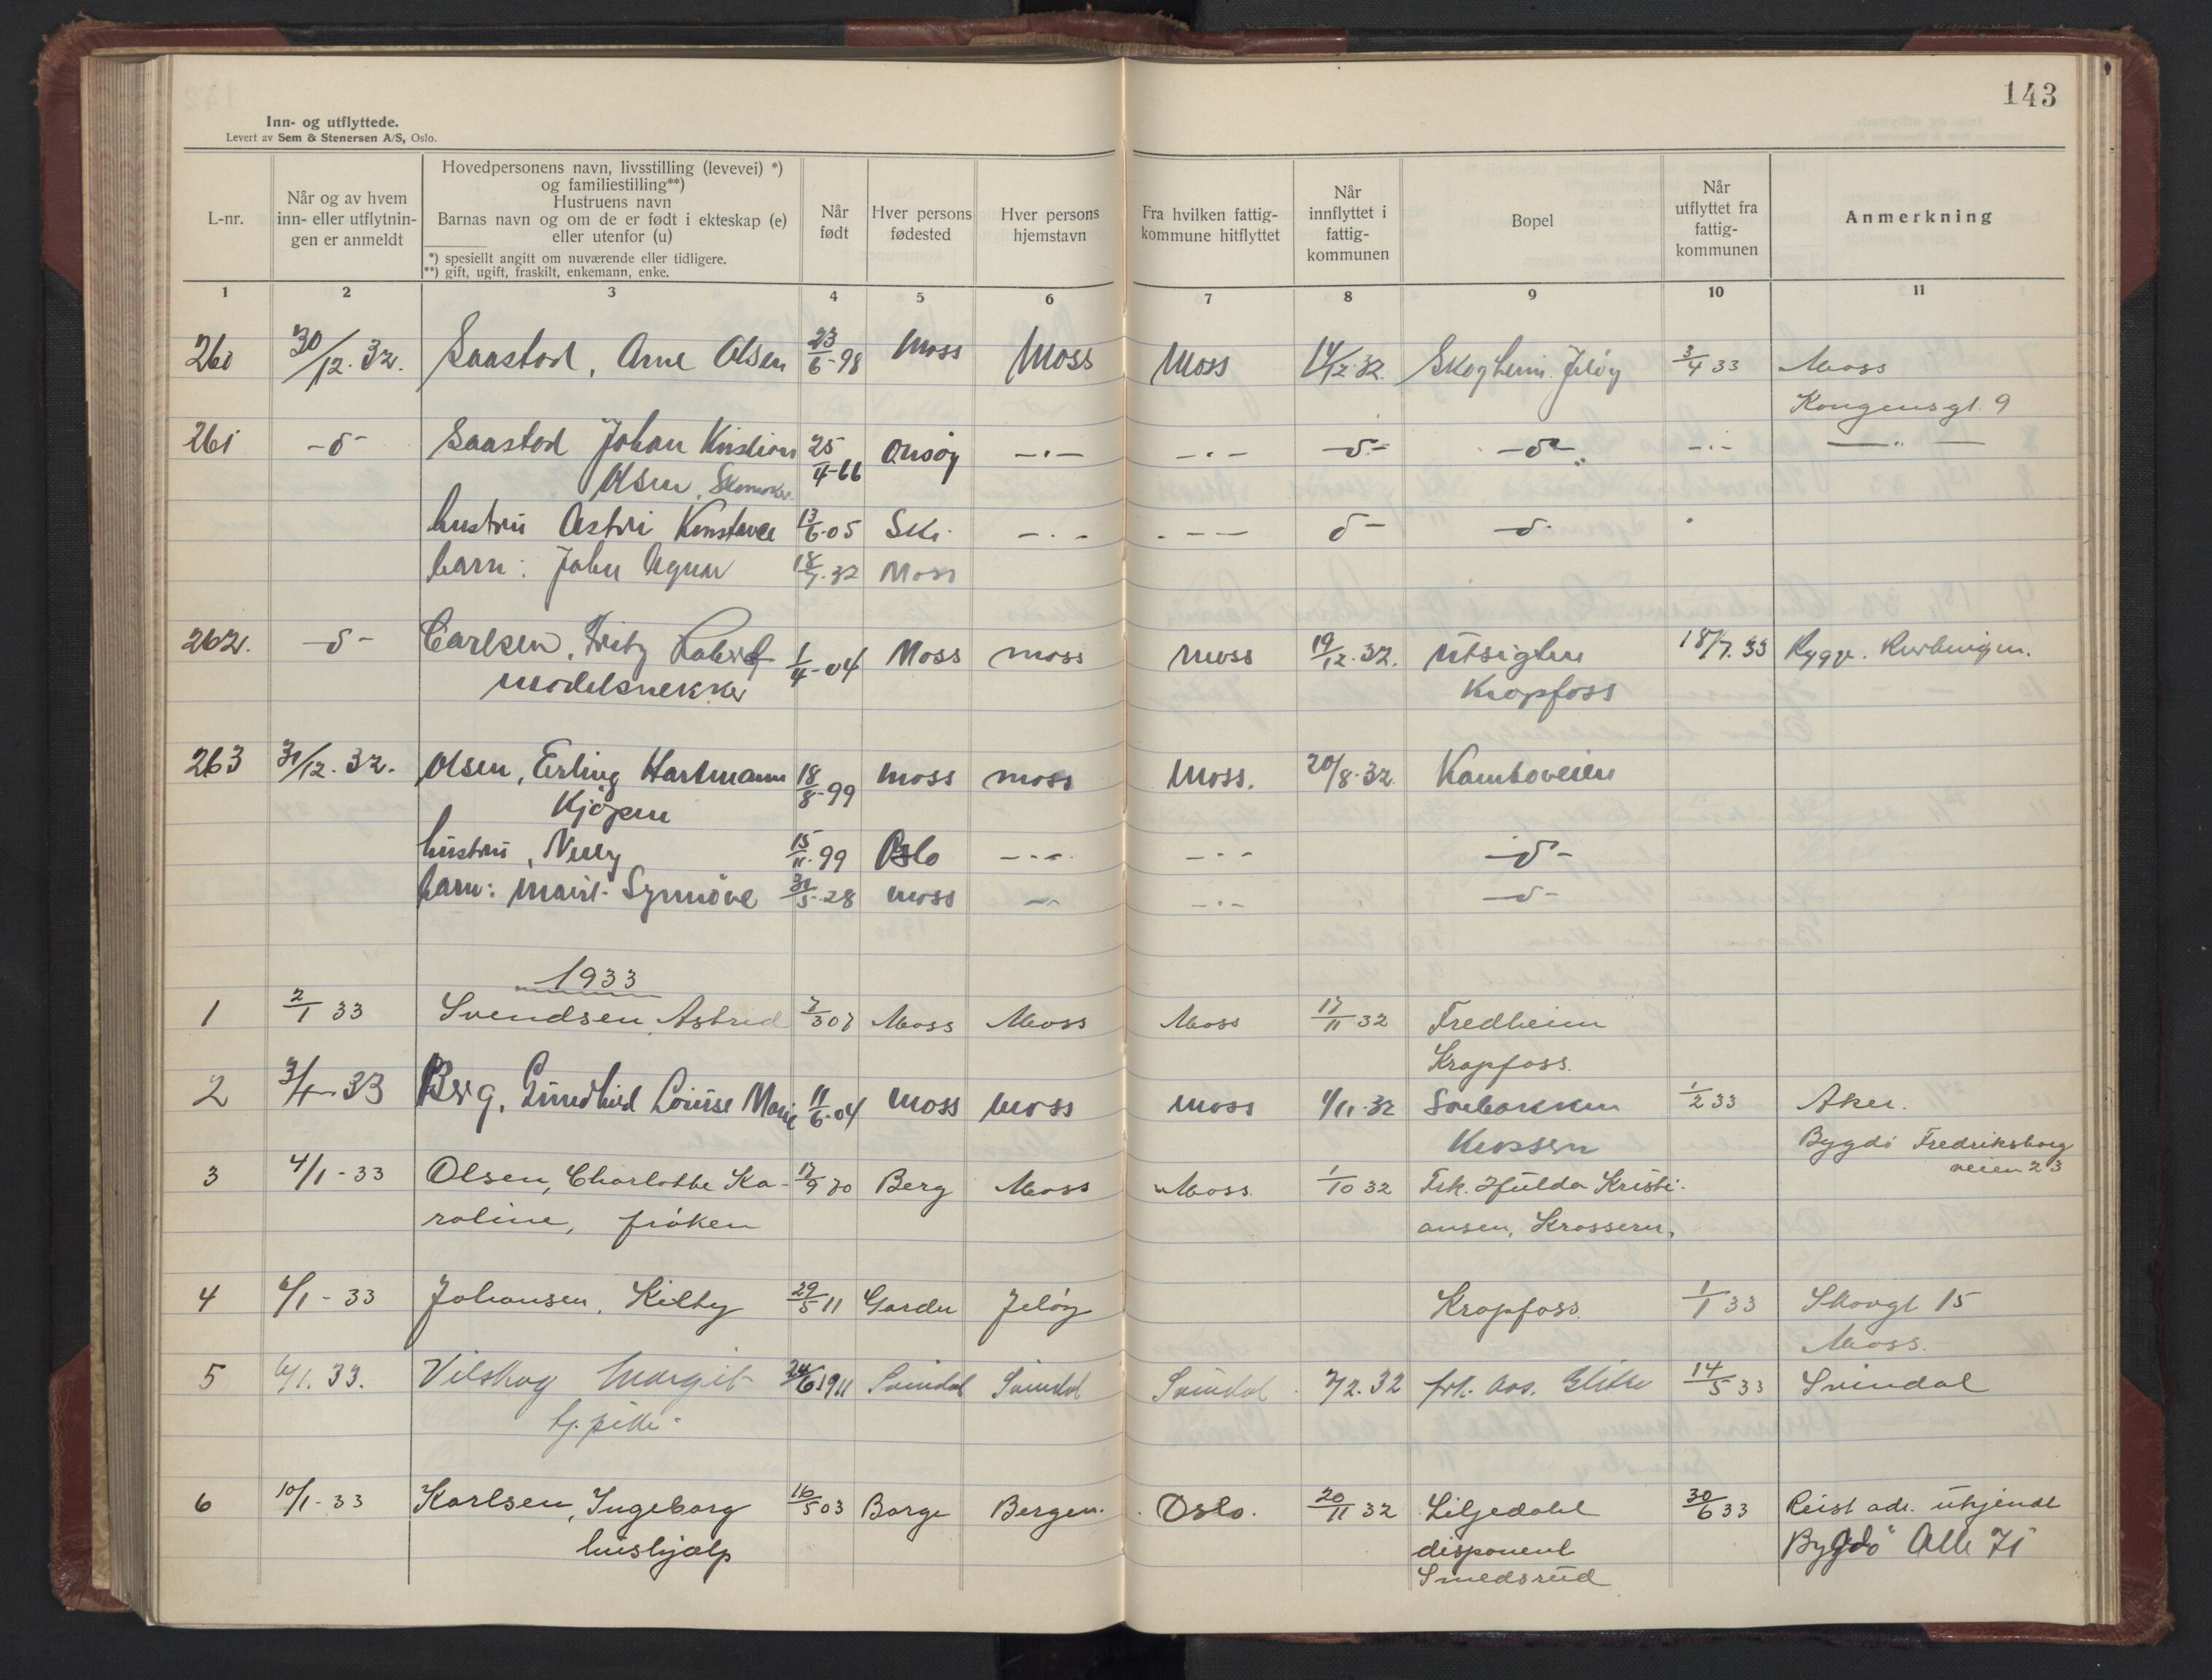 143
Inn- og utflyttede.
Levert av Sem & Stenersen A/S, Oslo.
L-nr.
Når og av hvem
inn- eller utflytnin-
gen er anmeldt
Hovedpersonens navn, livsstilling (levevei) *)
og familiestilling**)
Hustruens navn
Barnas navn og om de er født i ekteskap (e)
eller utenfor (u)
*) spesiellt angitt om nuværende eller tidligere.
**) gift, ugift, fraskilt, enkemann, enke.
Når
født
Hver persons
fødested
Hver persons
hjemstavn
Fra hvilken fattig-
kommune hitflyttet
Når
innflyttet i
fattig-
kommunen
Bopel
Når
utflyttet fra
fattig-
kommunen
Anmerkning
1 2 3 4 5 6 7 8 9 10 11
260 30/12.32. Saastad, Arne Olsen 23/6-98 Moss Moss Moss 14/12.32. Skogheim. Jeløy 3/4 33 Moss
Kongensgt. 9
261 -d- Saastad Johan Kristian 25/4-66 Onsøy -"- -"- -d- -d- -"- -"-
Olsen, Skomaker
hustru Astri Konstance 13/6-05 Ski -"- -"- d- -d-
barn: John Agnar 18/7.32 Moss
262. -d- Carlsen, Fritz 1/4-04 Moss Moss Moss 19/12.32. Utsigten 18/7.33 Rygge.
modelsnekker Kropfoss
263 31/12.32. Olsen, Erling Hartmann 18/8-99 Moss Moss Moss. 20/8.32 Kamboveien
Kjøpm
hustru, Nelly 15/11.99 Oslo -"- -"- -d-
barn: Marit-Synnøve 31/5.28 Moss -"- -"- -d-
1933
1 2/1 33 Svendsen, Astrid 7/3 07 Moss Moss Moss 17/11 32 Fredheim
Kropfoss.
2 3/4-33 Berg, Gundhild Louise Marie 11/6-04 Moss Moss Moss 1/11.32 Solbakken 1/2 33 Aker.
Krossern Bygdö Fredriksborg
veien 23
3 4/1-33 Olsen, Charlotte Ka- 17/9 70 Berg Moss Moss. 1/10 32 Frk. Hulda Kristi-
roline, frøken ansen, Krossern.
4 6/1-33 Johansen, Kitty 29/5 11 Garder Jeløy Kropfoss. 1/1 33 Skovgt 15
Moss.
5 6/1.33. Vilskog Margit 24/6 1911 Svindal Svindal Svindal 7/2.32 frk. Aas. 14/5 33 Svindal
tj.pike.
6 10/1-33 Karlsen, Ingeborg 16/5 03 Borge Bergen. Oslo. 20/11 32 Liljedahl 30/6 33 Reist adr. ukjendt
hushjælp disponent Bygdö Alle 71
Smedsrud